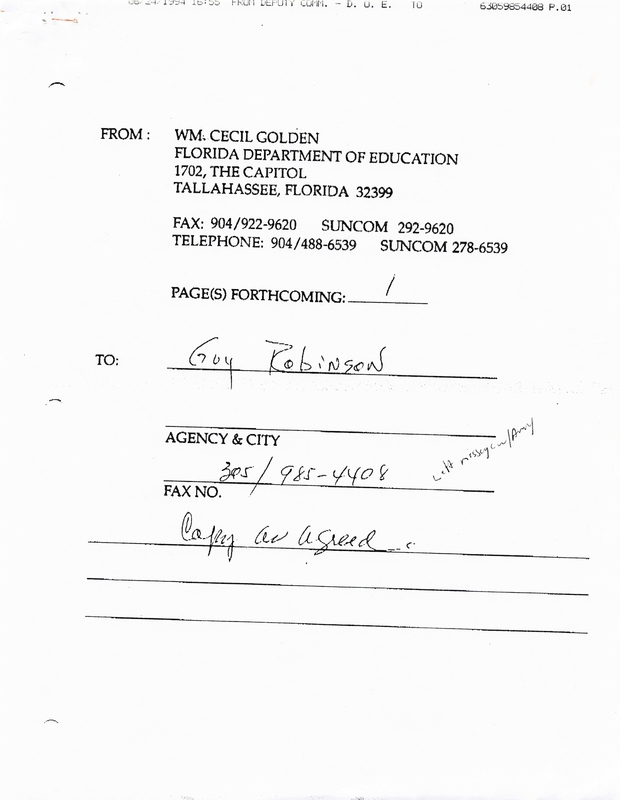 08/24/1994 16:55 FROM DEPUTY COMM. - D. O. E. TO 63059854408 P.01
FROM : WM. CECIL GOLDEN
FLORIDA DEPARTMENT OF EDUCATION
1702, THE CAPITOL
TALLAHASSEE, FLORIDA 32399
FAX: 904/922-9620 SUNCOM 292-9620
TELEPHONE: 904/488-6539 SUNCOM 278-6539
PAGE(S) FORTHCOMING: 1
TO: Guy Robinson
AGENCY & CITY
305/985-4408
FAX NO.
Left message w/Amy
Copy as Agreed